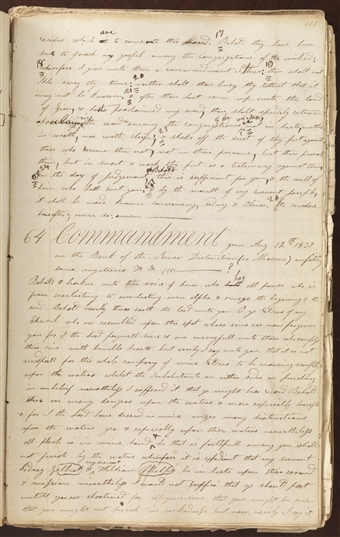 111
are
residue which to come unto this Land. Behold they have been
17
sent to preach my gospel among the congregations of the wicked;
18
wherefore I give unto them a commandment, thus: thou shalt not
19
idle away thy time; neither shalt thou bury thy talent that it
20
may not be known. & after thou hast come up unto the land
of Zion, & hast proclaimed my word, thou shalt speedily return
proclaiming the word among the congregations of the wicked not in haste neither
in wrath nor with strife; & shake off the dust of thy feet against
those who receive thee not, not in their presence, lest thou provoke
them, but in secret & wash thy feet as a testimony against them
in the day of judgement. Behold this is sufficient for you, & the will of
him who hath sent you. & by the mouth of my servant Joseph jr
it shall be made known concerning Sidney & Oliver, the residue
hereafter; even so; amen
64 Commandment given Aug 12th 1831
on the Bank of the River Destruction (or Missorie) unfolding
some mysteries &c &c
Behold & hearken unto the voice of him who hath all power who is
from everlasting to everlasting even alpha & omega the begining & the
end. Behold verely thus saith the Lord unto you O ye Elders of my
Church who are assembled upon this spot whose sins are now forgiven
you for I the Lord forgiveth sins & am mercyfull unto those who confess
their sins with humble hearts but verily I say unto you that it is not
needfull for this whole company of mine Elders to be moveing swiftly
upon the waters whilst the inhabitants on either side are perishing
in unbelief nevertheless I suffered it that ye might bear record Behold
there are many dangers upon the waters & more especially hereafter
for I the Lord have decreed in mine anger many destructions
upon the waters yea & especially upon these waters nevertheless
all flesh is in mine hand & he that is faithfull among you shall
not perish by the waters wherefore it is expedient that my servent
Sidney & William be in haste upon their errand
& mission nevertheless I would not suffer that ye should part
untill you are chastened for all your sins that you might be one
that you might not perish in wickedness but now verily I say it